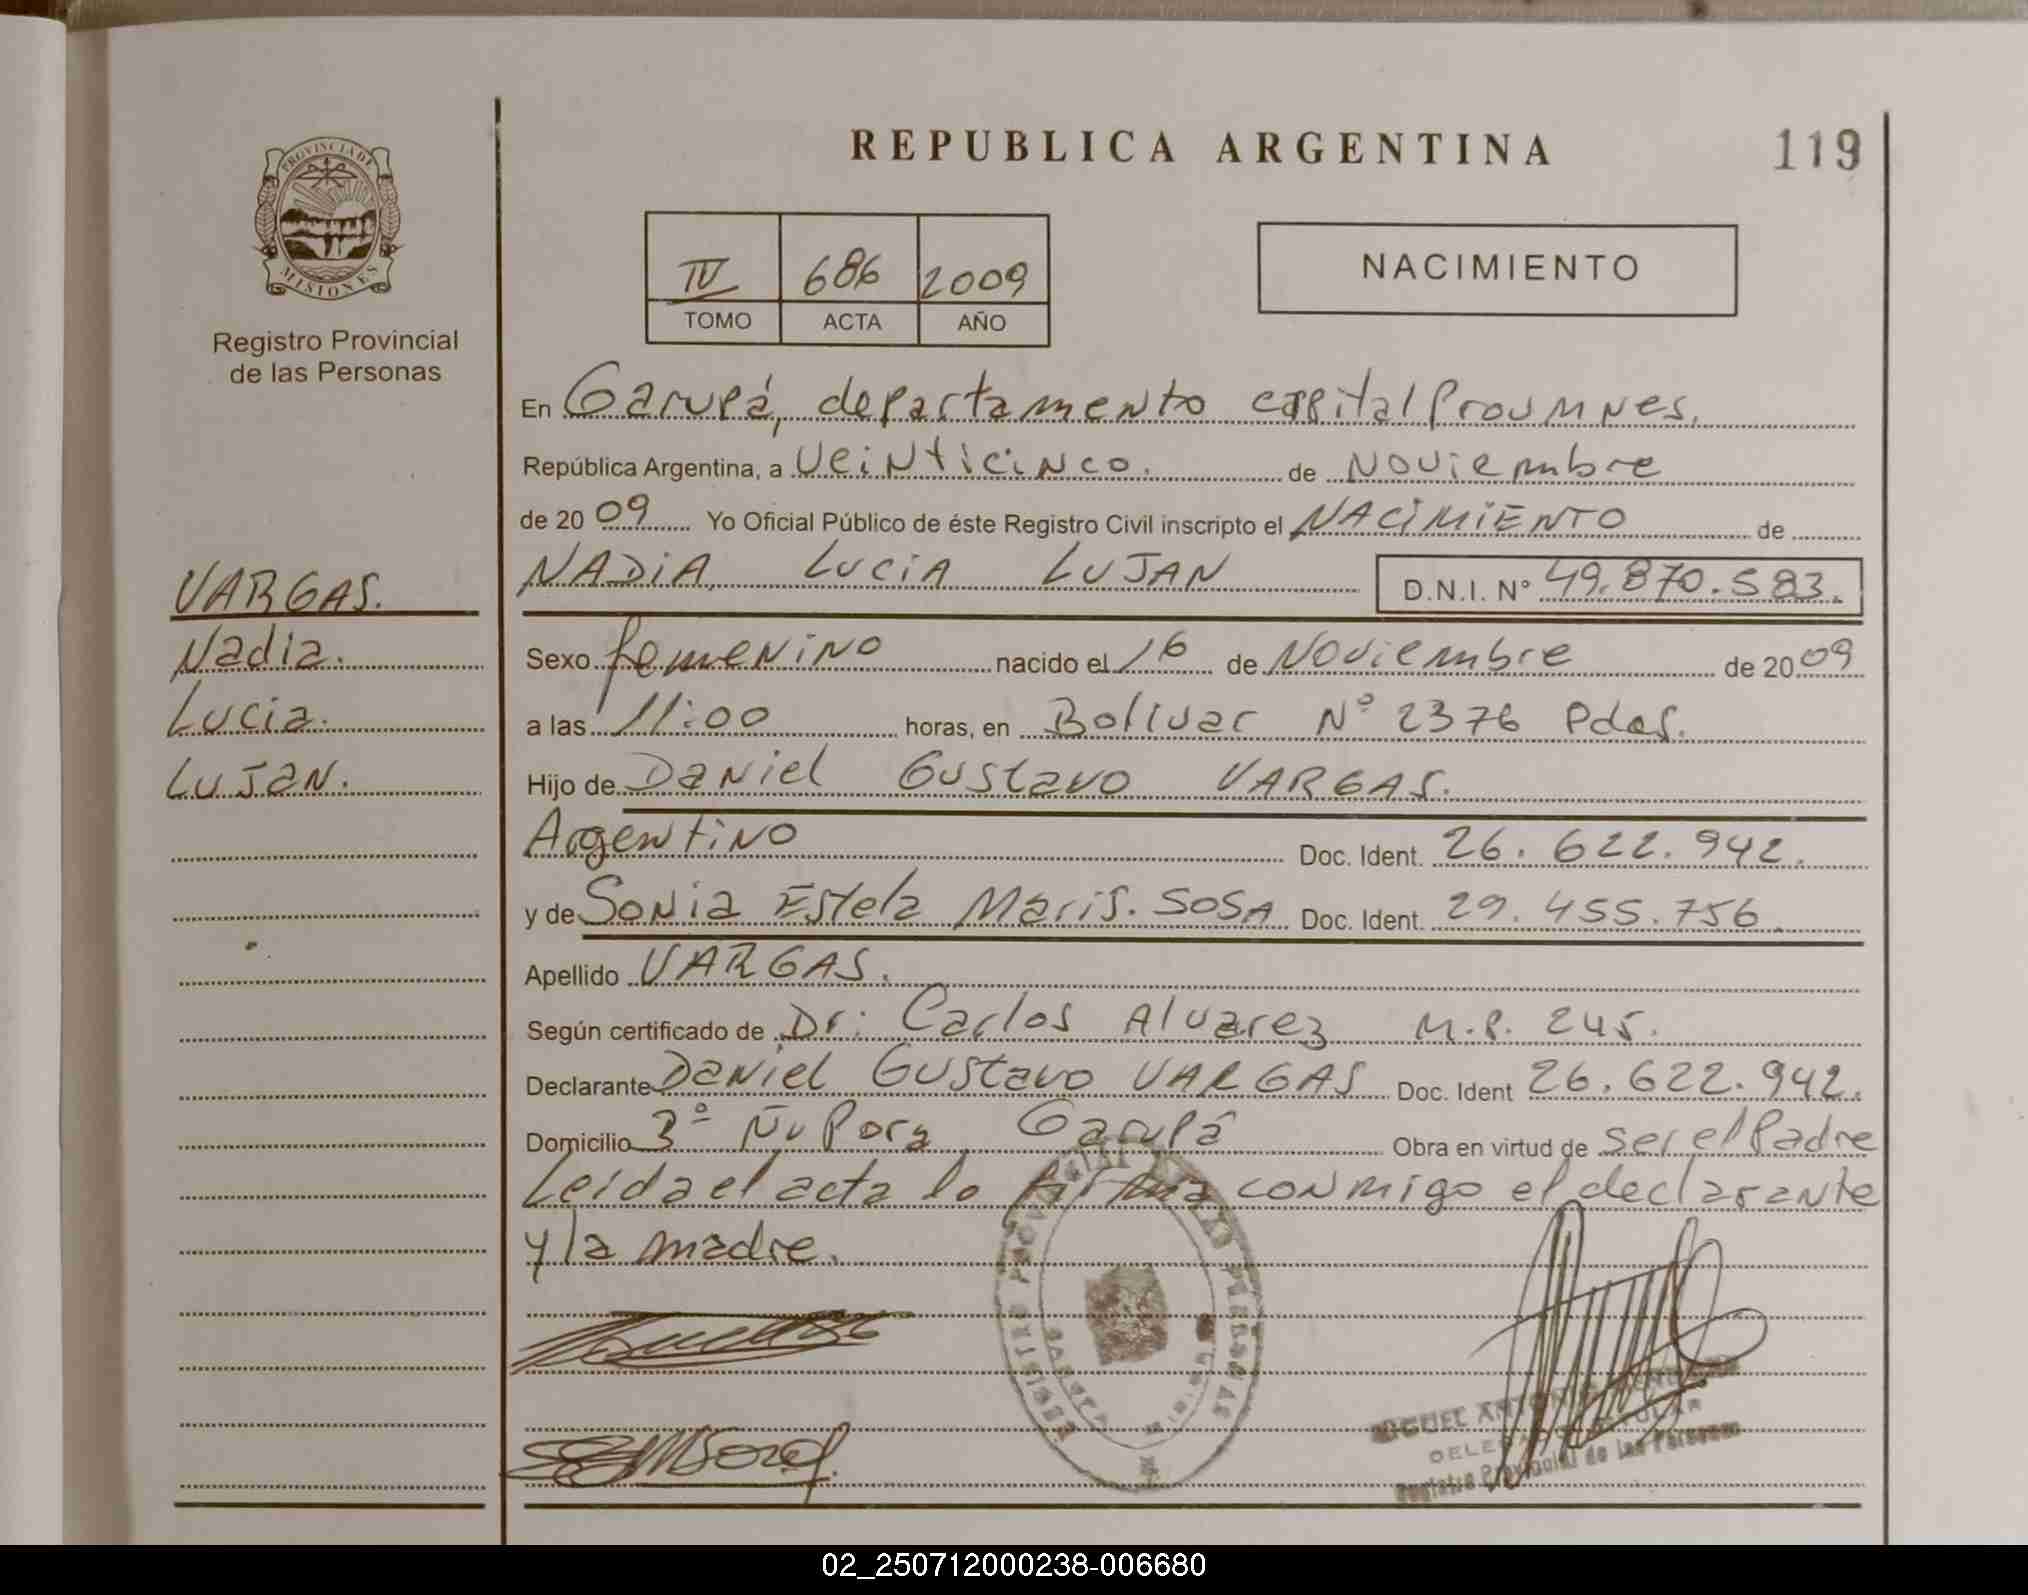 REPUBLICA ARGENTINA
119
PROVINCIA DE
MISIONES
Registro Provincial
de las Personas
IV 686 2009
TOMO ACTA AÑO
NACIMIENTO
En Garupá, departamento capital Prov Mnes.
República Argentina, a veinticinco. de Noviembre
de 2009 Yo Oficial Público de éste Registro Civil inscripto el NACIMIENTO de
NADIA LUCIA LUJAN D.N.I. Nº 49.870.583.
VARGAS.
Nadia.
Lucia.
LuJan.
Sexo femenino nacido el 16 de Noviembre de 2009
a las 11:00 horas, en Bolivar Nº 2376 Pdas.
Hijo de Daniel Gustavo VARGAS.
Argentino Doc. Ident. 26.622.942.
y de Sonia Estela Maris. SOSA Doc. Ident. 29.455.756.
Apellido VARGAS.
Según certificado de Dr: Carlos Alvarez M.P. 245.
Declarante Daniel Gustavo VARGAS Doc. Ident 26.622.942.
Domicilio 3º Ñu Pora Garupá Obra en virtud de ser el Padre
Leida el acta lo firma conmigo el declarante
y la madre.
REGISTRO PROVINCIAL PERSONAS
MIGUEL ANTONIO
DELEGADO TITULAR
Registro Provincial de las Personas
02_250712000238-006680